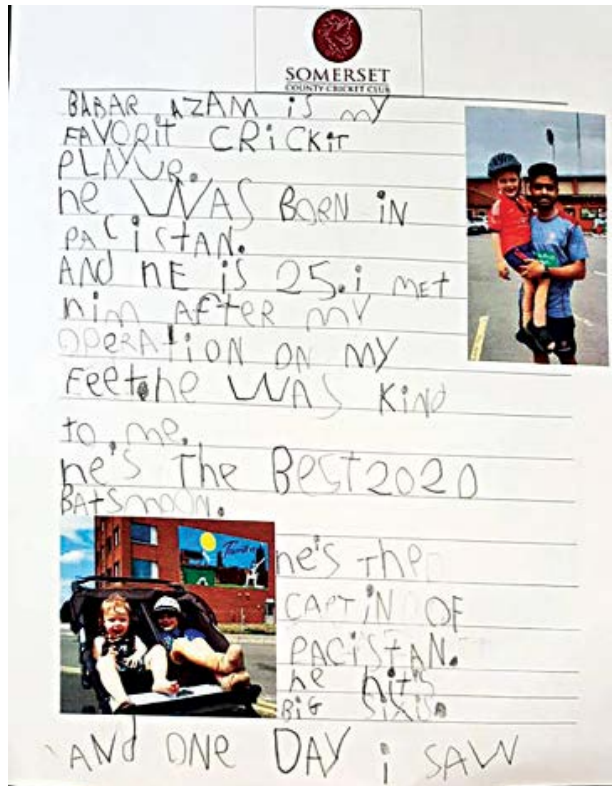 SOMERSET
COUNTY CRICKET CLUB
BABAR AZAM iS MY
FAVORiT CRiCKiT
PLAYUR.
he WAS BORN iN
PACiStAN.
AND hE iS 25. i MEt
him AFtER MY
OPERAtiON ON MY
FEEt. he WAS KiNd
to me.
he's The BEST 2020
BAtSmOON.
he's The
CAPTiN OF
PACiStAN.
he hits
BiG SiXiS.
ANd ONE DAY i SAW